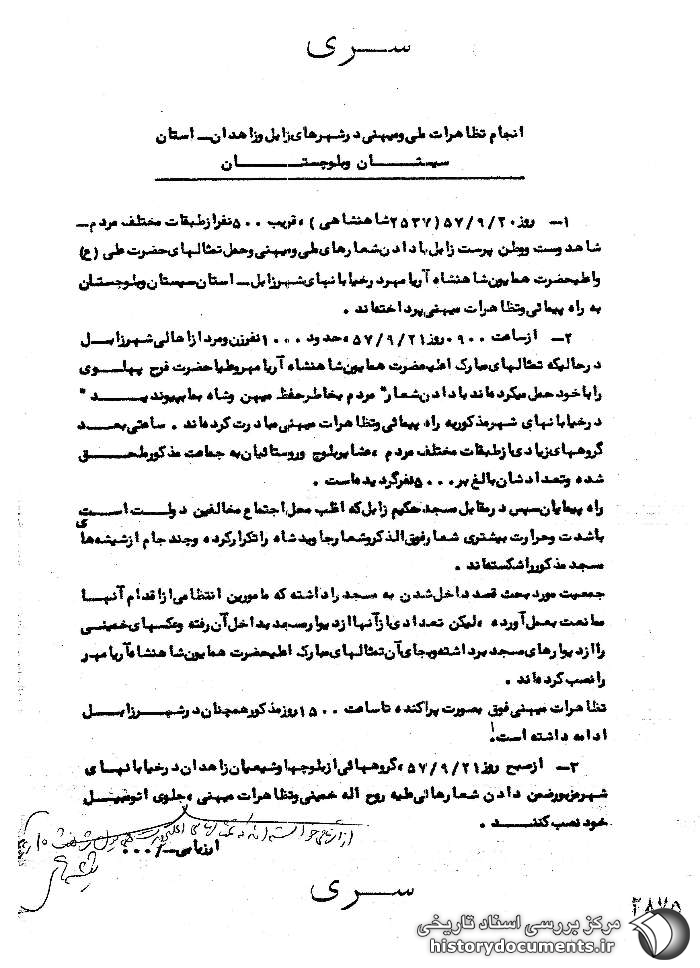 سری
انجام تظاهرات ملی و میهنی در شهرهای زابل و زاهدان ـ استان
سیستان و بلوچستان
۱ـ روز ۵۷/۹/۲۰ (۲۵۳۷ شاهنشاهی)، قریب ۵۰۰ نفر از طبقات مختلف مردم ـ
شاهدوست و وطن پرست زابل با دادن شعارهای ملی و میهنی و حمل تمثالهای حضرت علی (ع)
و اعلیحضرت همایون شاهنشاه آریامهر در خیابانهای شهر زابل ـ استان سیستان و بلوچستان
به راه پیمائی و تظاهرات میهنی پرداخته‌اند .
۲ـ از ساعت ۰۹۰۰ روز ۵۷/۹/۲۱، حدود ۱۰۰۰ نفر زن و مرد از اهالی شهر زابل
در حالیکه تمثالهای مبارک اعلیحضرت همایون شاهنشاه آریامهر و علیاحضرت فرح پهلوی
را با خود حمل میکرده‌اند با دادن شعار " مردم بخاطر حفظ میهن و شاه بما بپیوندید "
در خیابانهای شهر مذکور به راه پیمائی و تظاهرات میهنی مبادرت کرده‌اند . ساعتی بعد
گروههای زیادی از طبقات مختلف مردم ، عشایر بلوچ و روستائیان به جماعت مذکور ملحق
شده و تعدادشان بالغ بر ۵۰۰۰ نفر گردیده‌است .
راه پیمایان سپس در مقابل مسجد حکیم زابل که اغلب محل اجتماع مخالفین دولت است
با شدت و حرارت بیشتری شعار فوق الذکر و شعار جاوید شاه را تکرار کرده و چند جام از شیشه‌های
مسجد مذکور را شکسته‌اند .
جمعیت مورد بحث قصد داخل شدن به مسجد را داشته که مامورین انتظامی از اقدام آنها
ممانعت بعمل آورده ، لیکن تعدادی از آنها از دیوار مسجد بداخل آن رفته و عکسهای خمینی
را از دیوارهای مسجد برداشته و بجای آن تمثالهای مبارک اعلیحضرت همایون شاهنشاه آریامهر
را نصب کرده‌اند .
تظاهرات میهنی فوق بصورت پراکنده تا ساعت ۱۵۰۰ روز مذکور همچنان در شهر زابل
ادامه داشته است.
۳ـ از صبح روز ۵۷/۹/۲۱، گروههائی از بلوچها و شیعیان زاهدان در خیابانهای
شهر مزبور ضمن دادن شعارهائی علیه روح اله خمینی و تظاهرات میهنی ، جلوی اتومبیل
خود نصب کنند .
ارزیابی ـ/۰۰۰
سری
۲۸۷۵
مرکز بررسی اسناد تاریخی
historydocuments.ir